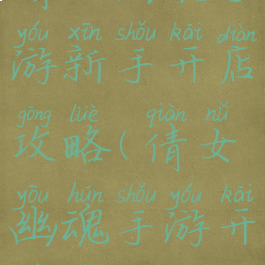 yóu xīn shǒu kāi diàn
游新手开店
gōng lüè qiàn nǚ
攻略(倩女
yōu hún shǒu yóu kāi
幽魂手游开